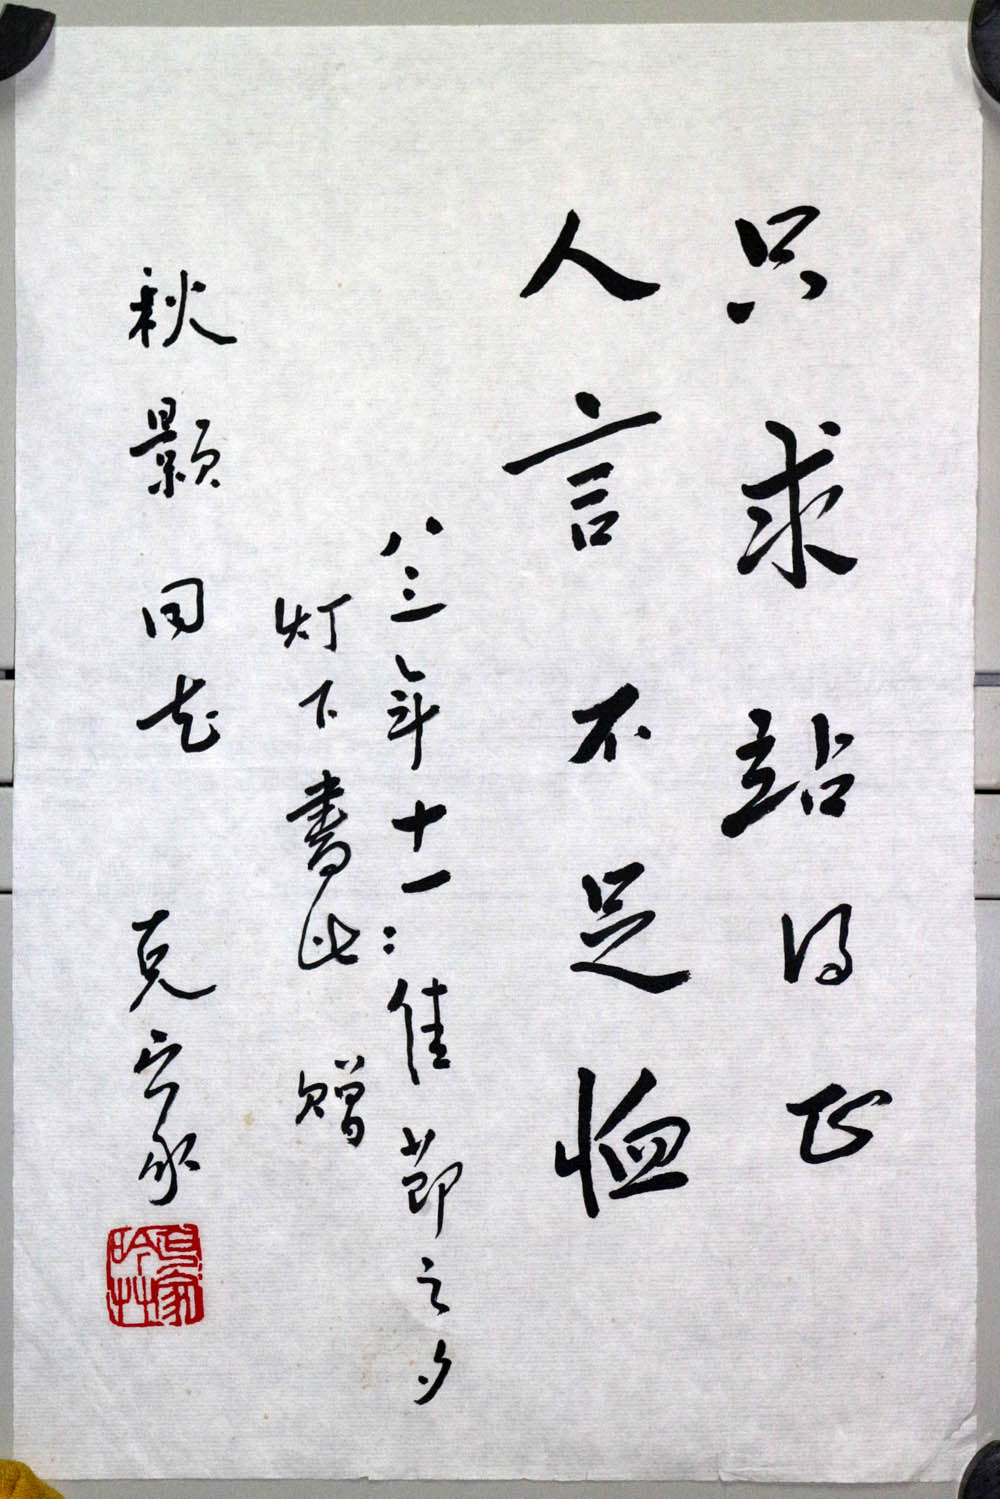 只求站得正
人言不足恤
八三年十一:佳節之夕
灯下書此 赠
秋颢同志 克家